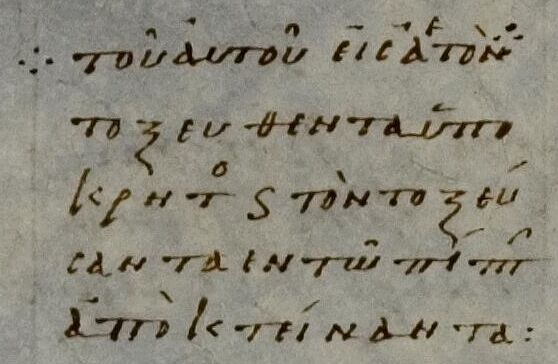 ∴ τοῦ αὐτοῦ εἰς ἀετὸν
τοξευθέντα ὑπο
κρητο ϛ τὸν τοξεύ
σαντα εν τῶ πίπτ
ἀπὸκτείναντα: